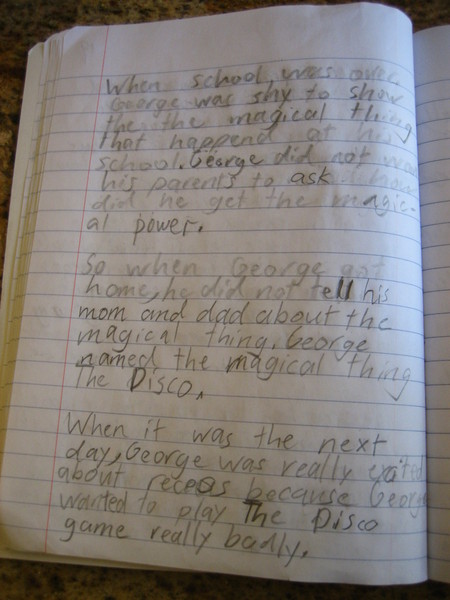 When school was over
George was shy to show
the the magical thing
that happend at his
school. George did not
his parents to ask how
did he get the magic-
al power.
So when George got
home, he did not tell his
mom and dad about the
magical thing. George
named the magical thing
The Disco.
When it was the next
day, George was really exited
about recess because George
wanted to play The Disco
game really badly.